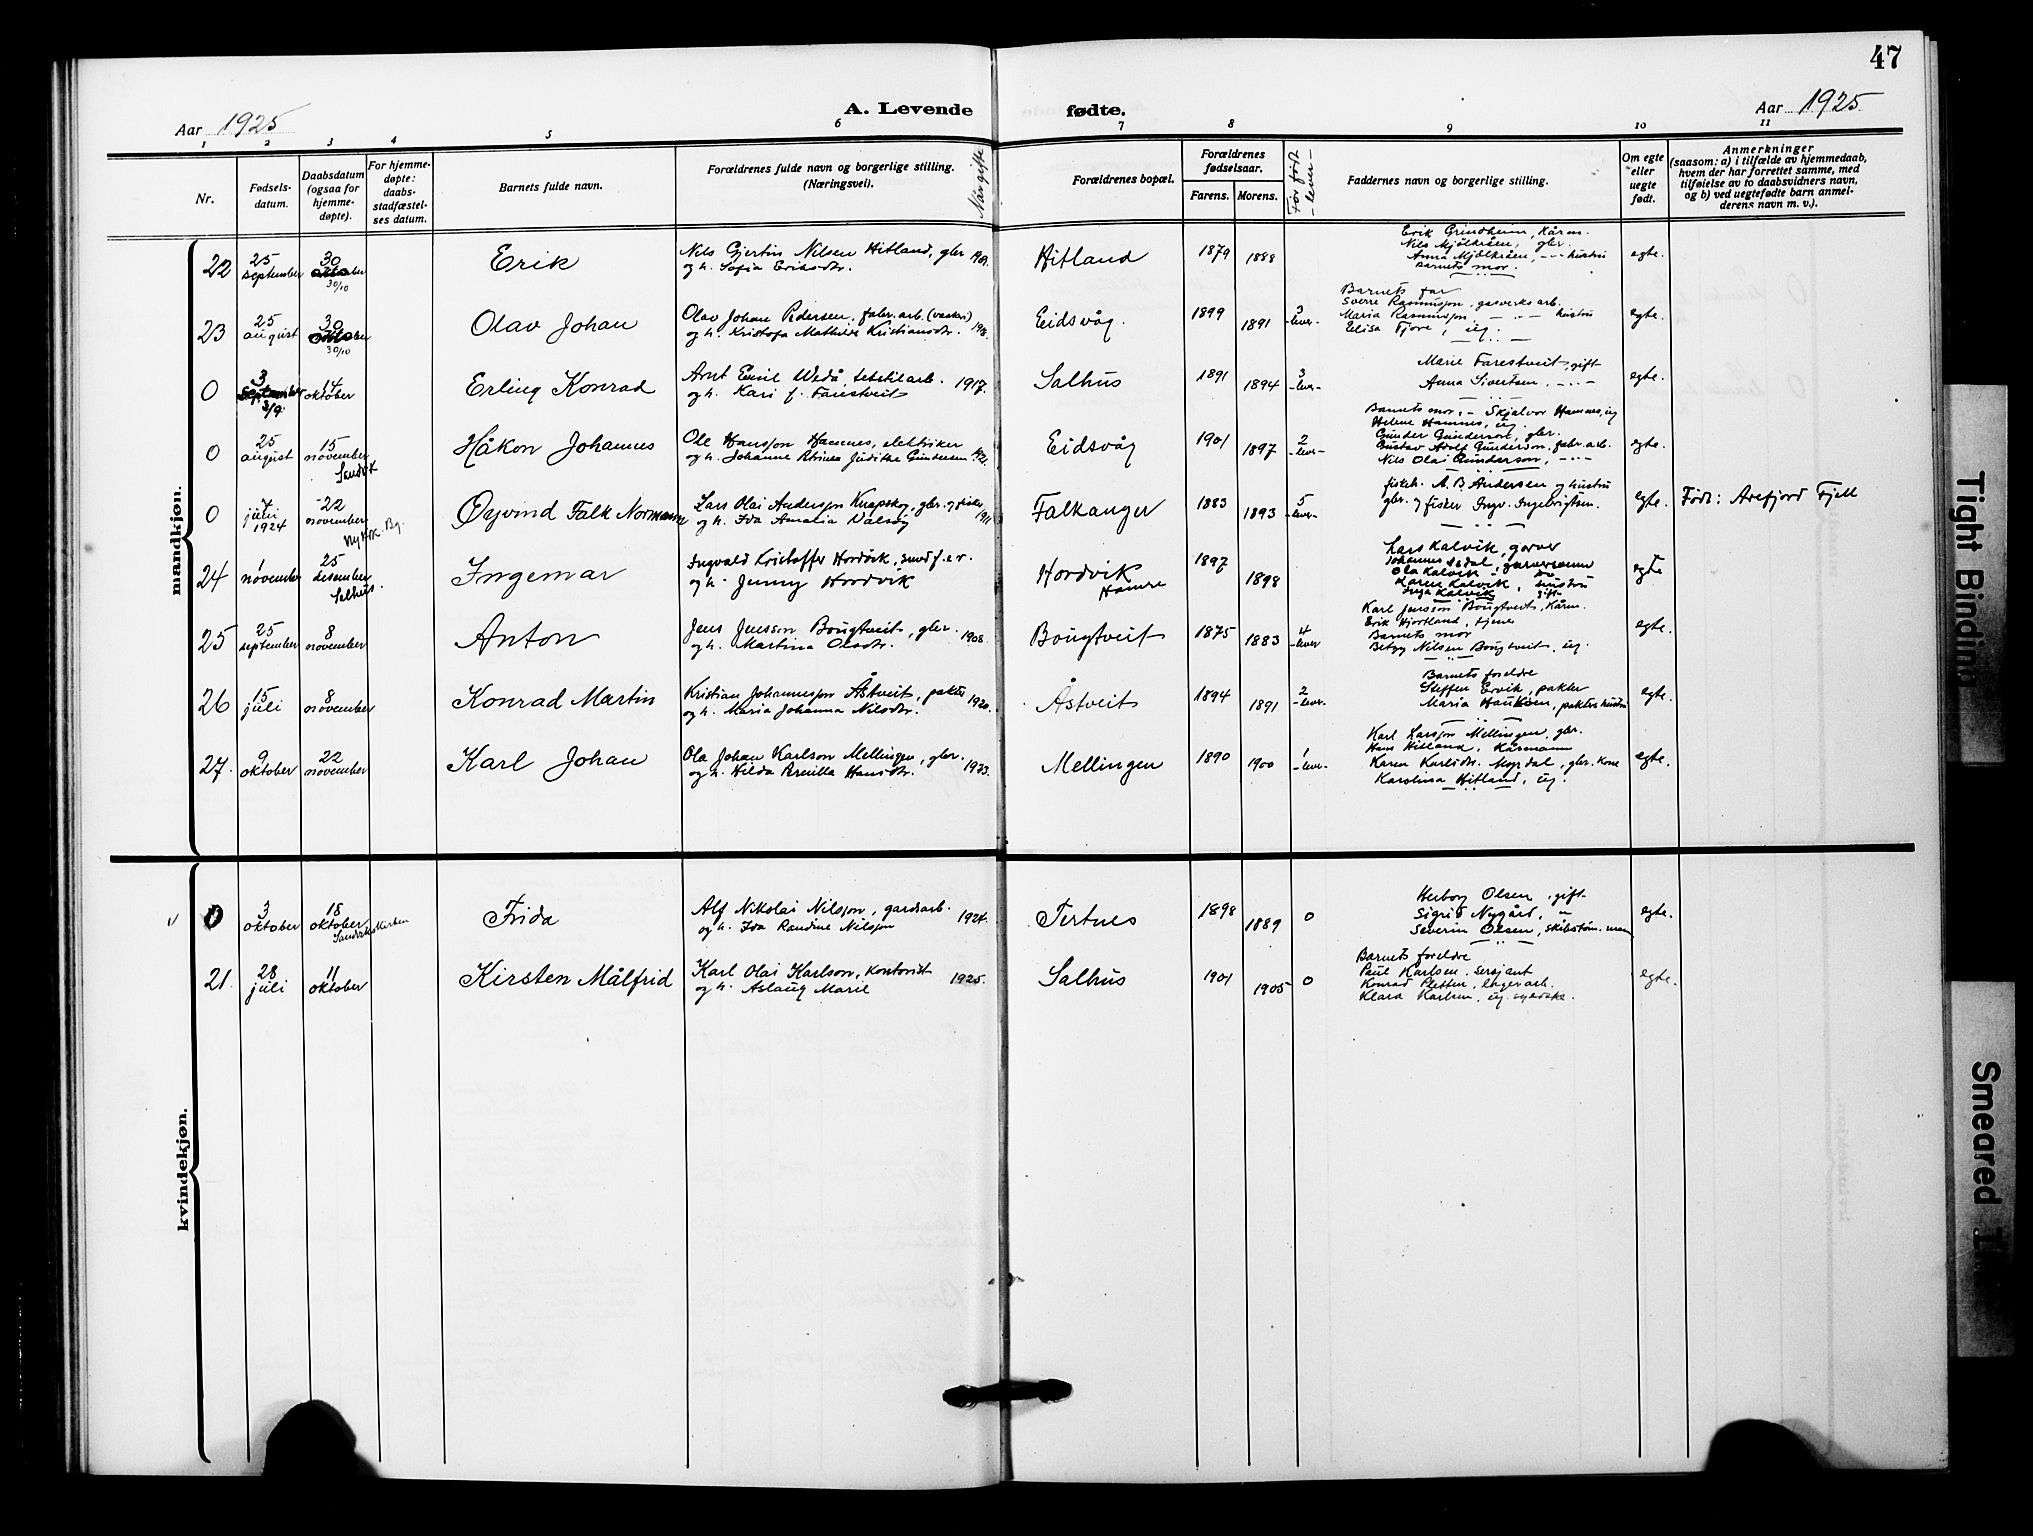 47
A. Levende fødte.
Aar 1925
Aar 1925
1 2 3 4 5 6 7 8 9 10 11
Nr.
Fødsels-
datum.
Daabsdatum
(ogsaa for
hjemme-
døpte).
For hjemme-
døpte:
daabs-
stadfæstel-
ses datum.
Barnets fulde navn.
Forældrenes fulde navn og borgerlige stilling.
(Næringsvei).
Når gifte
Forældrenes bopæl.
Forældrenes
fødselsaar.
Farens. Morens.
Før født
-lever-
Faddernes navn og borgerlige stilling.
Om egte
eller
uegte
født.
Anmerkninger
(saasom: a) i tilfælde av hjemmedaab,
hvem der har forrettet samme, med
tilføielse av to daabsvidners navn,
og b) ved uegtefødte barn anmel-
derens navn m. v.).
mandkjøn.
22 25 september 30 30/10 Erik
Nils Gjertin Nilsen Hitland, gbr
og h. Sofia Eriksdtr.
Hitland 1879 1888
Erik Grindheim, kårm.
Nils Mjölkråen, gbr.
Anna Mjölkråen, -"- hustru
Barnets mor.
egte.
23 25 august 30 30/10 Olav Johan
Olav Johan Pedersen, fabr.arb.
og h. Kristofa Mathilde Kristiansdtr.
Eidsvåg. 1899 1891 3 -lever-
Barnets far
Sverre Rasmussen, gasverksarb.
Maria Rasmussen -"- hustru
Elisa Fjøre, ug.
egte.
0 3 september 3/9. 14 oktober Erling Konrad
Arnt Emil Wedå, tekstilarb. 1917.
og h. Kari f. Farestveit
Salhus 1891 1894 3 -lever-
Marie Farestveit, gift
Anna Sivertsen, -"-
egte.
0 25 august 15 november Håkon Johannes
Ole Hansson Hamnes, elektriker
og h. Johanne Petrine Judithe Gundersen
Eidsvåg 1901 1897 2 -lever-
Barnets mor, - Skjalvor Hamnes, ug
Helene Hamnes, ug.
Gunder Gunderson, gbr.
Gustav Adolf Gunderson, fabr.arb.
Nils Olai Gunderson, -"-
egte.
0 7 juli 1924 22 november Øyvind Falk Normann
Lars Olai Andersen Knapskog, gbr. og fisker 1911
og h. Ida Amalia Valsøy
Falkanger 1883 1893 5 -lever-
fiskeh. A. B. Andersen og hustru
gbr. og fisker Ingv. Ingebrigtsen.
egte. Født: Arefjord Fjell
24 1 november 25 desember Salhus. Ingemar
Ingvald Kristoffer Hordvik, smed f.e.r.
og h. Jenny Hordvik
Hordvik Hamre 1897 1898
Lars Kalvik, garver
Ola Kalvik
Karen Kalvik, hustru
Inga Kalvik gift
egte
25 25 september 8 november Anton
Jens Jensson Bougtveit, gbr. 1908.
og h. Martina Olsdtr.
Bougtveit 1875 1883 4 -lever
Karl Jensson Bougtveit, kårm.
Erik Hjortland, tjener
Barnets mor
Betzy Nilsen Bougtveit, ug.
egte.
26 15 juli 8 november Konrad Martin
Kristian Johannesson Åstveit, pakter 1920.
og h. Maria Johanna Nilsdtr.
Åstveit 1894 1891 2 -lever-
Barnets foreldre
Steffen Ervik, pakter
Maria Haukåen, pakters hustru
egte.
27. 9 oktober 22 november Karl Johan
Ola Johan Karlson Mellingen, gbr.
og h. Hilda Pernilla Hansdtr. 1923.
Mellingen 1890 1900 1 -lever-
Karl Larsson Mellingen, gbr.
Hans Hitland, kårmann
Karen Karlsdtr. Myrdal, gbr. kone
Karolina Hitland, ug.
egte.
kvindekjøn.
0 3 oktober 18 oktober Sandvikskirken Frida
Alf Nikolai Nilsson, gardsarb. 1924.
og h. Ida Randine Nilsson
Tertnes 1898 1889 0
Herborg Olsen, gift
Sigrid Nygård, "
Severin Olsen, skibstøm.man
egte.
21. 28 juli 11 oktober Kirsten Målfrid
Karl Olai Karlson, kontorist 1925.
og h. Aslaug Marie
Salhus 1901 1905 0
Barnets foreldre
Paul Karlsen, sersjant
Konrad Pletten, lagerarb.
Klara Karlsen, ug. syerske.
egte.
Tight Binding
Smeared